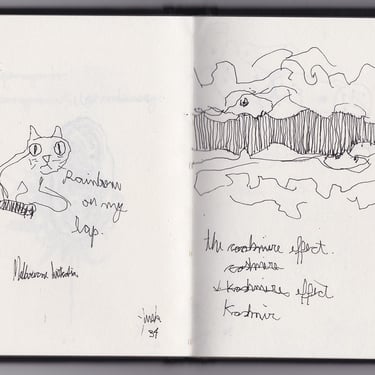 Rainbow
on my
lap.
Melbourne Australia
94
the cashmire effect.
cashmire
Kashmire effect
Kashmir